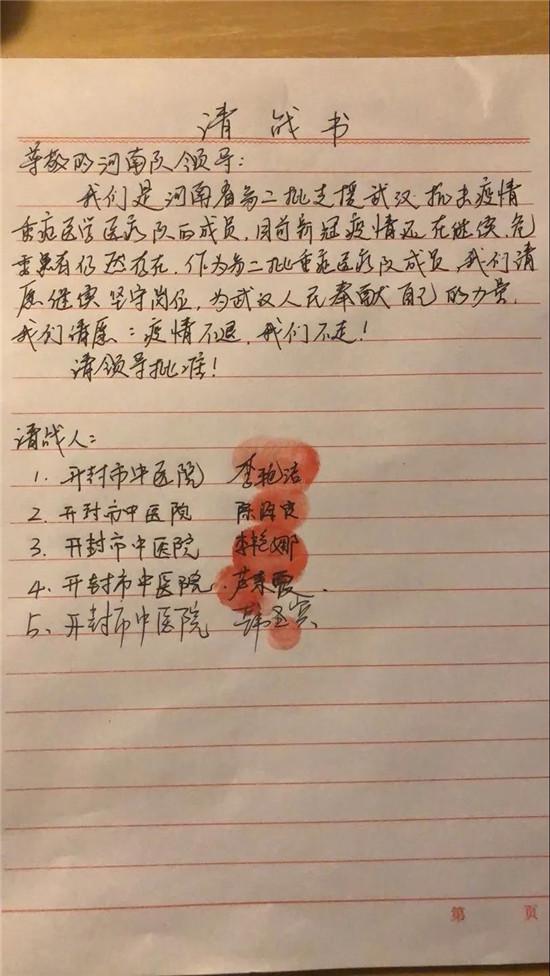 请战书
尊敬的河南队领导:
我们是河南省第二批支援武汉抗击疫情
重症医学医疗队的成员,目前新冠疫情还在继续,危
重患者仍然存在,作为第二批重症医疗队成员,我们请
愿继续坚守岗位,为武汉人民奉献自己的力量,
我们请愿:疫情不退,我们不走!
请领导批准!
请战人:
1、开封市中医院 李艳洁
2、开封市中医院
3、开封市中医院 李艳娜
4、开封市中医院
5、开封市中医院
第 页